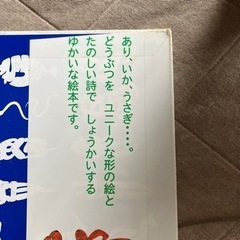 あり、いか、うさぎ・・・・。
どうぶつを ユニークな形の絵と
たのしい詩で しょうかいする
ゆかいな絵本です。